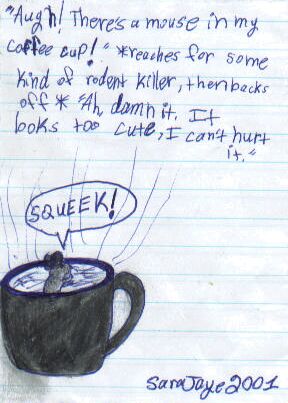 "Augh! There's a mouse in my
coffee cup!" *reaches for some
kind of rodent killer, then backs
off* "Ah, damn it. It
looks too cute, I can't hurt
it."
SQUEEK!
SaraJaye2001